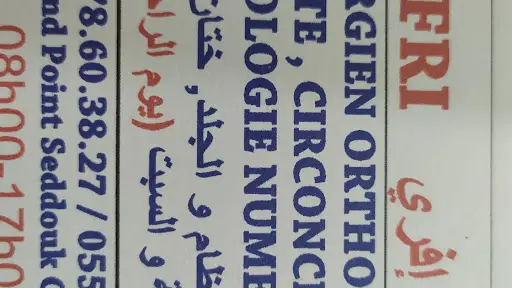 FRI إفري
RGIEN ORTHO
TE , CIRCONCI
OLOGIE NUME
ظام و الجلد, ختان
و السبت (يوم الرا
78.60.38.27 / 055
nd Point Seddouk
08h00-17h0